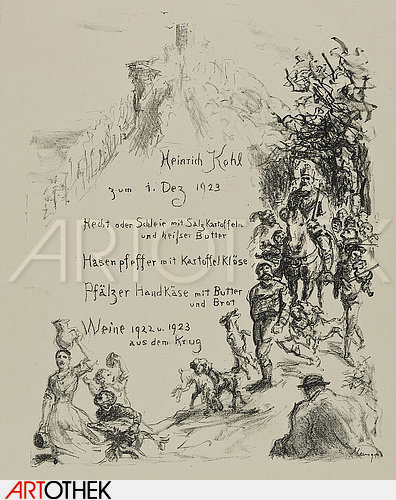 Heinrich Kohl
zum 1. Dez 1923
Hecht oder Schleie mit Salzkartoffeln
und heißer Butter
Hasenpfeffer mit Kartoffel Klöse
Pfälzer Handkäse mit Butter
und Brot
Weine 1922 u. 1923
aus dem Krug
ARTOTHEK
ARTOTHEK